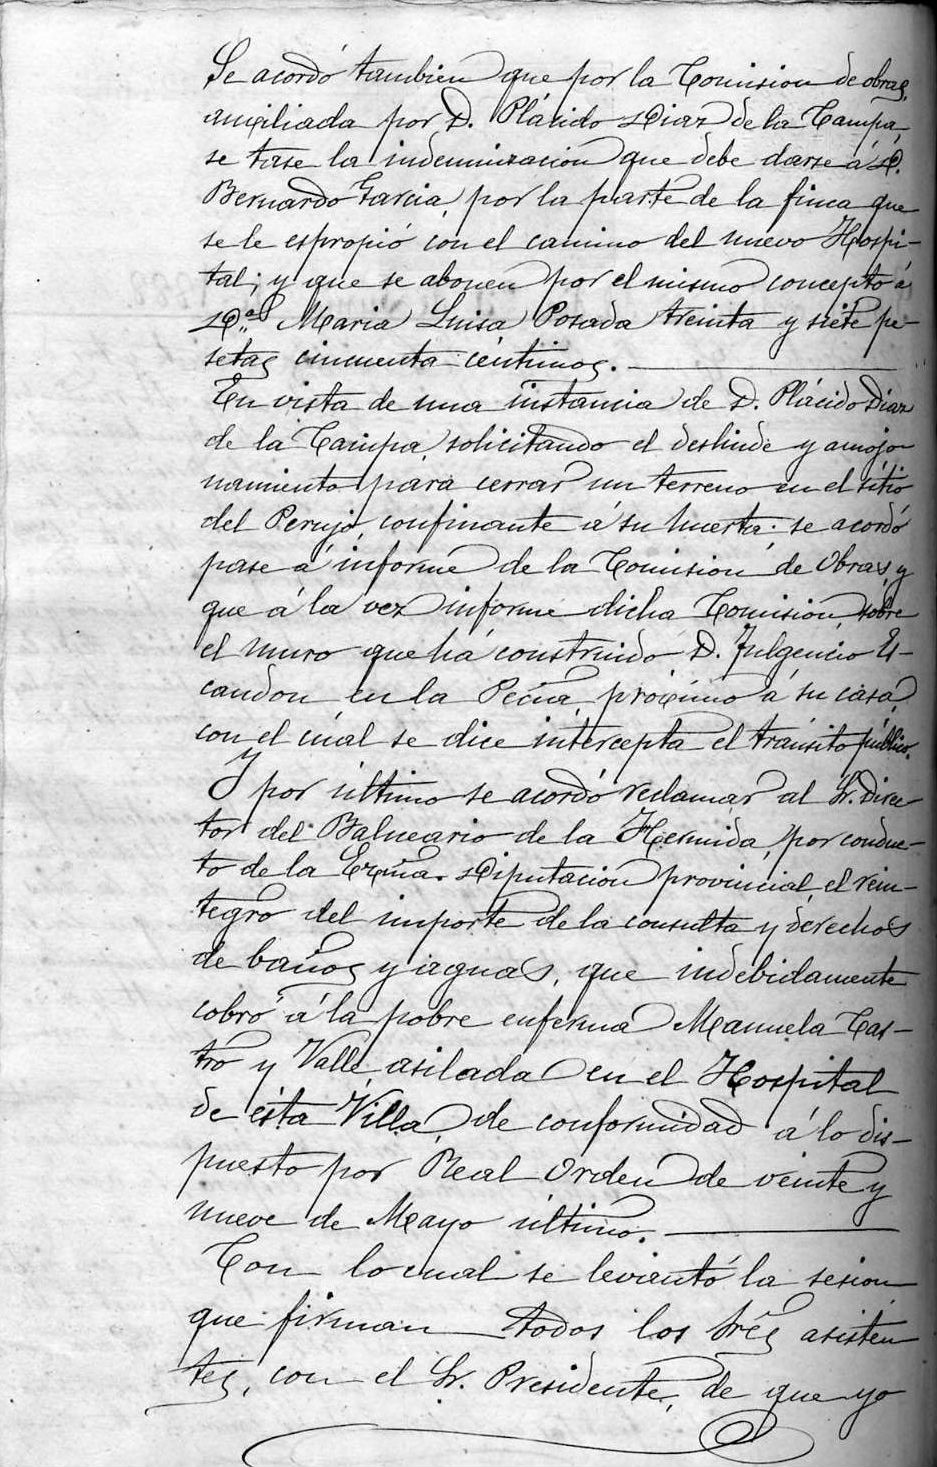 Se acordó tambien que por la Comision de obras,
auxiliada por D. Plácido Diaz de la Campa,
se tase la indemnizacion que debe darse á D.
Bernardo Garcia, por la parte de la finca que
se le espropió con el camino del nuevo Hospi-
tal; y que se abonen por el mismo concepto á
D.ª Maria Luisa Posada treinta y siete pe-
setas cincuenta céntimos.
En vista de una instancia de D. Plácido Diaz
de la Campa, solicitando el deslinde y amojo
namiento para cerrar un terreno en el sitio
del Perujo, confinante á su huerta: se acordó
pase á informe de la Comision de Obras, y
que á la vez informe dicha Comision, sobre
el muro que há construido D. Fulgencio Es-
candon en la Pecina, próximo á su casa,
con el cual se dice intercepta el tránsito público.
Y por último se acordó reclamar al Sr. Direc
tor del Balneario de la Hermida, por conduc-
to de la Excma. Diputacion provincial, el rein-
tegro del importe de la consulta y derechos
de baños y aguas, que indebidamente
cobró á la pobre enferma Manuela Cas-
tro y Valle, asilada en el Hospital
de ésta Villa, de conformidad á lo dis-
puesto por Real Orden de veinte y
nueve de Mayo último.
Con lo cual se levantó la sesion
que firman todos los Sres asisten
tes, con el Sr. Presidente, de que yo